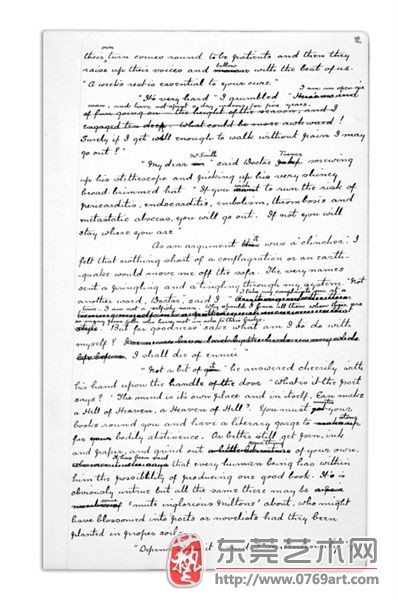 own
their turn comes round to be patients and then they
raise up their voices and bellow with the best of us.
"A week's rest is essential to your cure."
"It's very hard" I grumbled "I am an
man, and have not spent a day indoors for five years.
of fun going on — the height of the season, and I
engaged ten deep, What could be more awkward!
Surely if I get well enough to walk without pain I may
go out?"
Mr Smith Turner
"My dear" said Doctor screwing
up his stethoscope and picking up his very shiney
broad brimmed hat "If you want to run the risk of
pericarditis, endocarditis, embolism, thrombosis and
metastatic abscess, you will go out. If not you will
stay where you are"
As an argument it was a "clincher. I
felt that nothing short of a conflagration or an earth-
quake would move me off the sofa. The very names
sent a pringling and a tingling through my system "Not
another word, Doctor," said I "I take my complaints one at a
time. I am not a man. Why should I have all these when there
But for goodness' sake what am I to do with
myself?
I shall die of ennui"
"Not a bit of it" he answered cheerily with
his hand upon the handle of the door "What is it the poet
says? 'The mind is its own place and in itself, Can make
a Hell of Heaven, a Heaven of Hell'. You must your
books round you and have a literary gorge to atone
for your bodily abstinence. Or better still get pen, ink
and paper, and grind out something of your own.
It has been said
that every human being has within
him the possibility of producing one good book. It is
obviously untrue but all the same there may be
some 'mute inglorious Miltons' about, who might
have blossomed into poets or novelists had they been
planted in proper soil
"Depend it
东莞艺术网
http://www.0769art.com